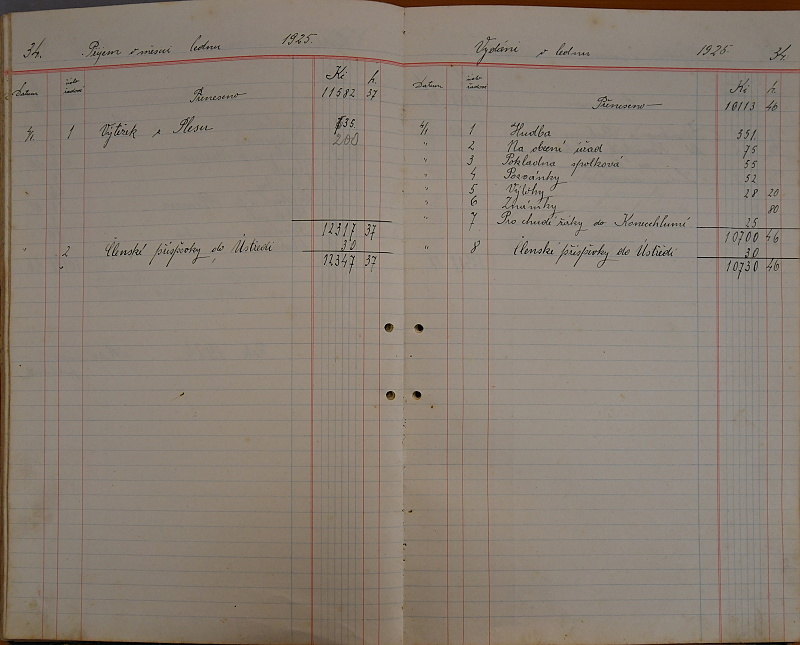 34. Příjem v měsíci lednu 1925.
Datum číslo řadové Kč h.
Přeneseno 11582 37
4/1 1 Výtěžek z Plesu 735
200
12317 37
" 2 Členské příspěvky do Ústředí 30
12347 37
Vydání v lednu 1925 34.
Datum číslo řadové Kč h.
Přeneseno 10113 46
4/1 1 Hudba 351
" 2 Na obecní úřad 75
" 3 Pokladna spolková 55
" 4 Pozvánky 52
" 5 Výlohy 28 20
" 6 Známky 80
" 7 Pro chudé žáky do Konechlumí 25
10700 46
" 8 Členské příspěvky do Ústředí 30
10730 46